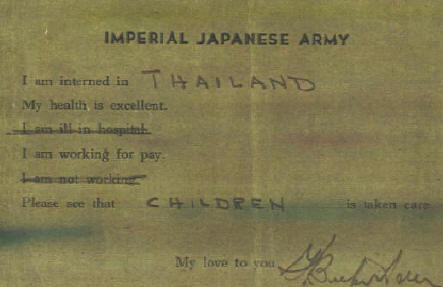 IMPERIAL JAPANESE ARMY
I am interned in THAILAND
My health is excellent.
I am ill in hospital.
I am working for pay.
I am not working.
Please see that CHILDREN is taken care
My love to you